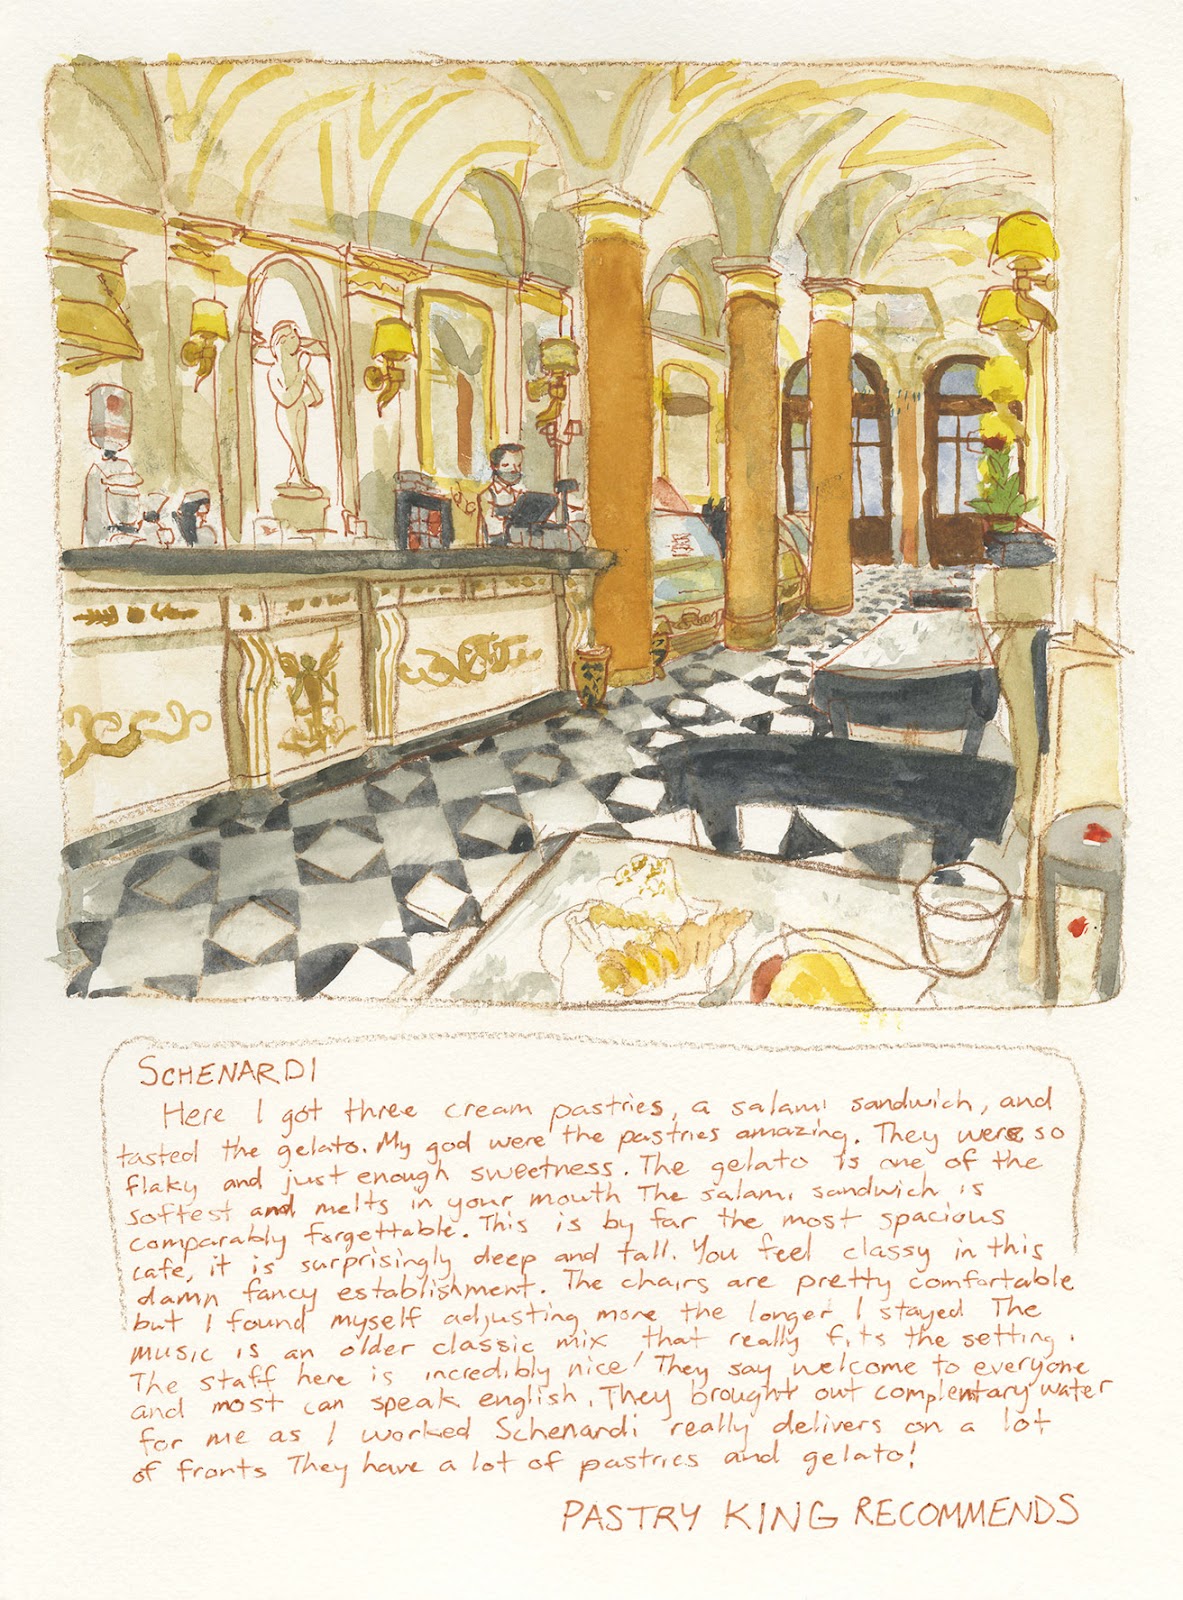 SCHENARDI
Here I got three cream pastries, a salami sandwich, and
tasted the gelato. My god were the pastries amazing. They were so
flaky and just enough sweetness. The gelato is one of the
softest and melts in your mouth The salami sandwich is
comparably forgettable. This is by far the most spacious
cafe, it is surprisingly deep and tall. You feel classy in this
damn fancy establishment. The chairs are pretty comfortable
but I found myself adjusting more the longer I stayed The
music is an older classic mix that really fits the setting.
The staff here is incredibly nice! They say welcome to everyone
and most can speak english. They brought out complentary water
for me as I worked Schenardi really delivers on a lot
of fronts They have a lot of pastries and gelato!
PASTRY KING RECOMMENDS